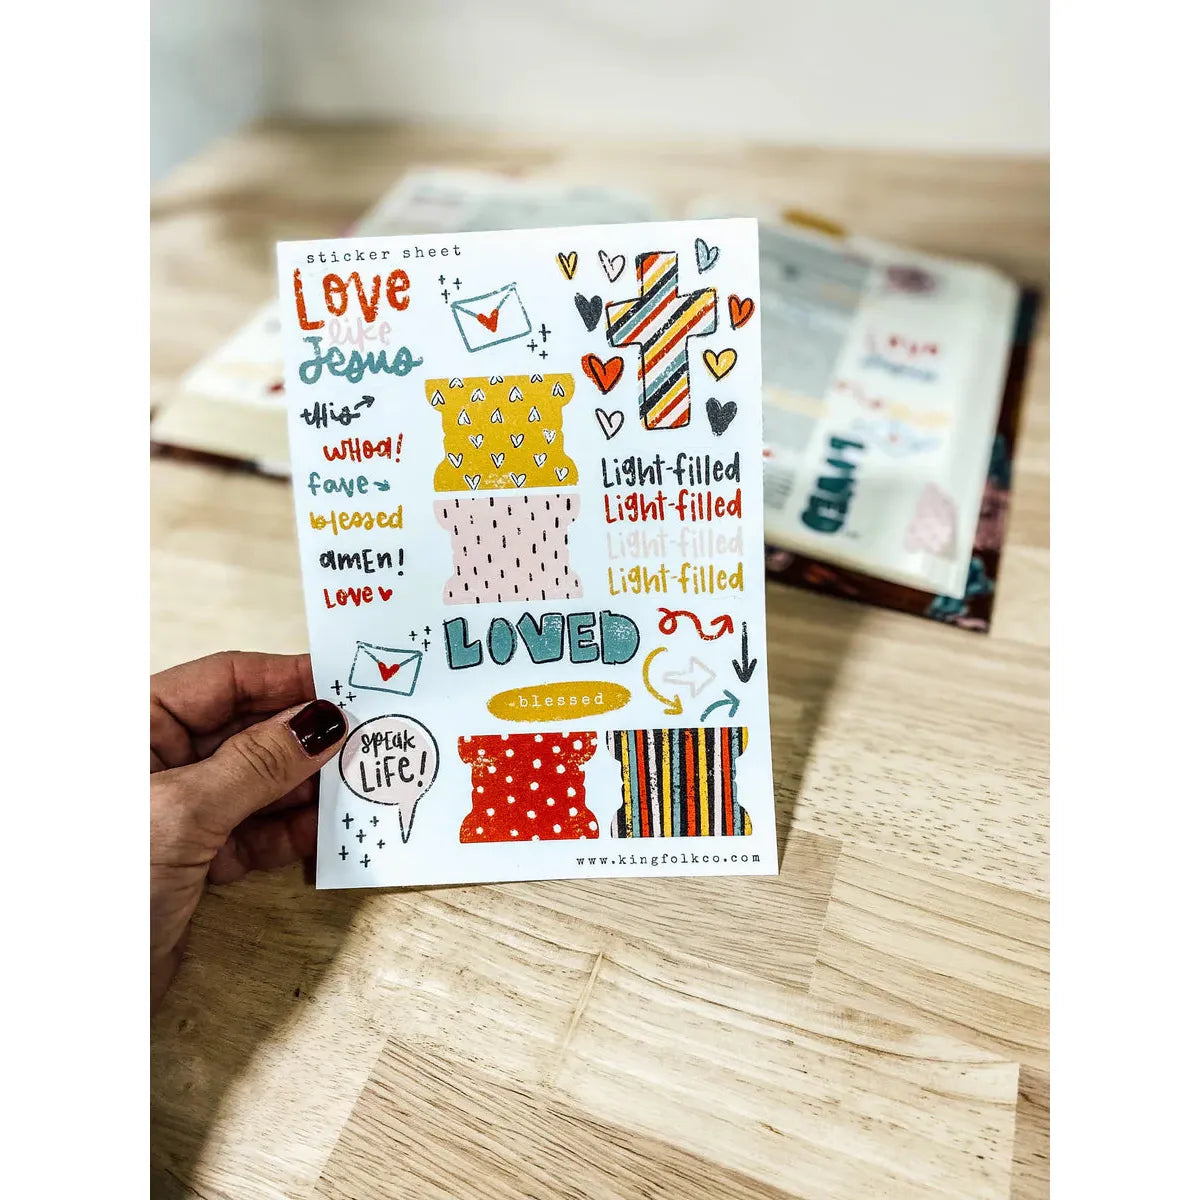 sticker sheet
Love
like
Jesus
this
whoa!
fave
blessed
amen!
Love
Light-filled
Light-filled
Light-filled
Light-filled
LOVED
blessed
SPEAK
LIFE!
www.kingfolkco.com
Love
LOVED